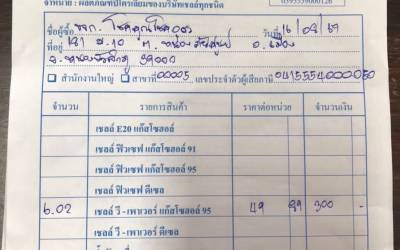 จำหน่าย : ผลิตภัณฑ์ปิโตรเลียมของบริษัทเชลล์ทุกชนิด
ชื่อผู้ซื้อ หจก. วันที่ 16/09/69
ที่อยู่ 121 ม.10 ต. อ.เมือง
จ. 39000
สำนักงานใหญ่ สาขาที่ 00005 เลขประจำตัวผู้เสียภาษี 0415554000050
จำนวน รายการสินค้า ราคาต่อหน่วย จำนวนเงิน
เชลล์ E20 แก๊สโซฮอล์
เชลล์ ฟิวเซฟ แก๊สโซฮอล์ 91
เชลล์ ฟิวเซฟ แก๊สโซฮอล์ 95
เชลล์ ฟิวเซฟ ดีเซล
6.02 เชลล์ วี - เพาเวอร์ แก๊สโซฮอล์ 95 49 89 300 -
เชลล์ วี - เพาเวอร์ ดีเซล